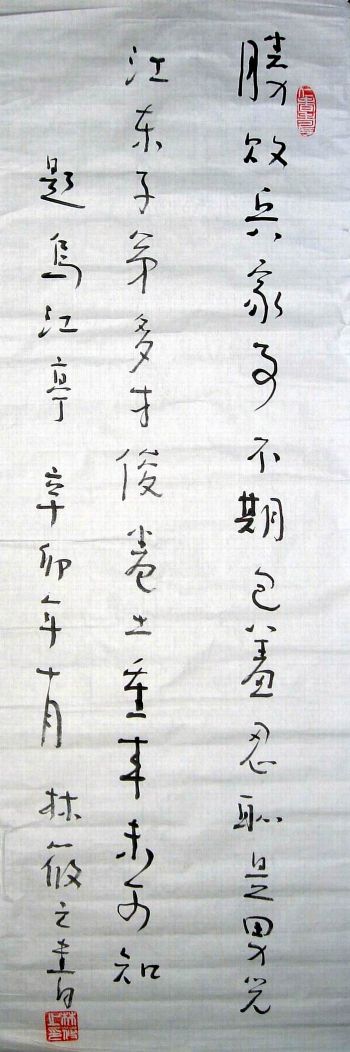 勝敗兵家事不期包羞忍恥是男兒
江东子弟多才俊卷土重来未可知
題烏江亭 辛卯年十月 林筱之書